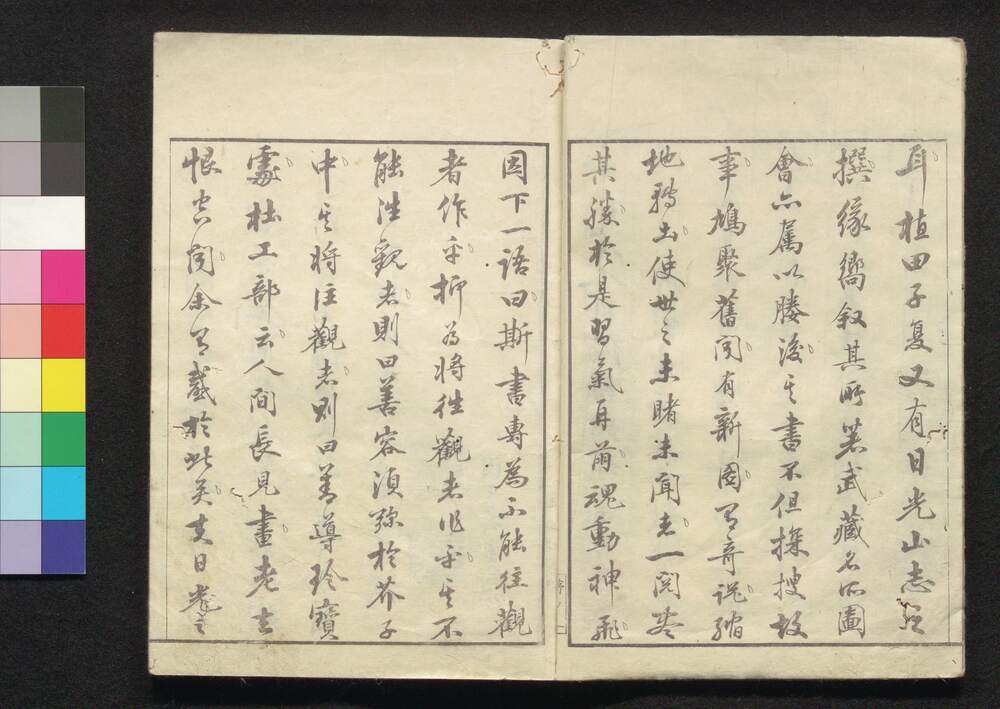 耳植田子复又有日光山志
撰緣嚮叙其所著武藏名所圖
會亦属以賸後其書不但探搜故
事鳩聚舊聞有新圖有奇説縮
地轉出使世之未睹未聞者一閲
其勝於是習氣再萠魂動神飛
因下一語曰斯書專為不能往觀
者作乎抑為將往觀者作乎其不
能往觀者則曰善容須弥於芥子
中其將往觀者則曰善導於寶
處杜工部云人間長見畫老去
恨空聞余有感於此矣